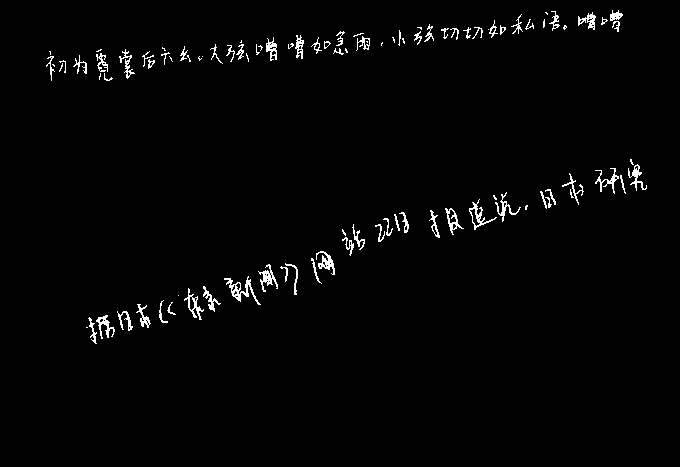 初为霓裳后六幺。大弦嘈嘈如急雨,小弦切切如私语。嘈嘈
据日本《东京新闻》网站22日报道说,日本研究